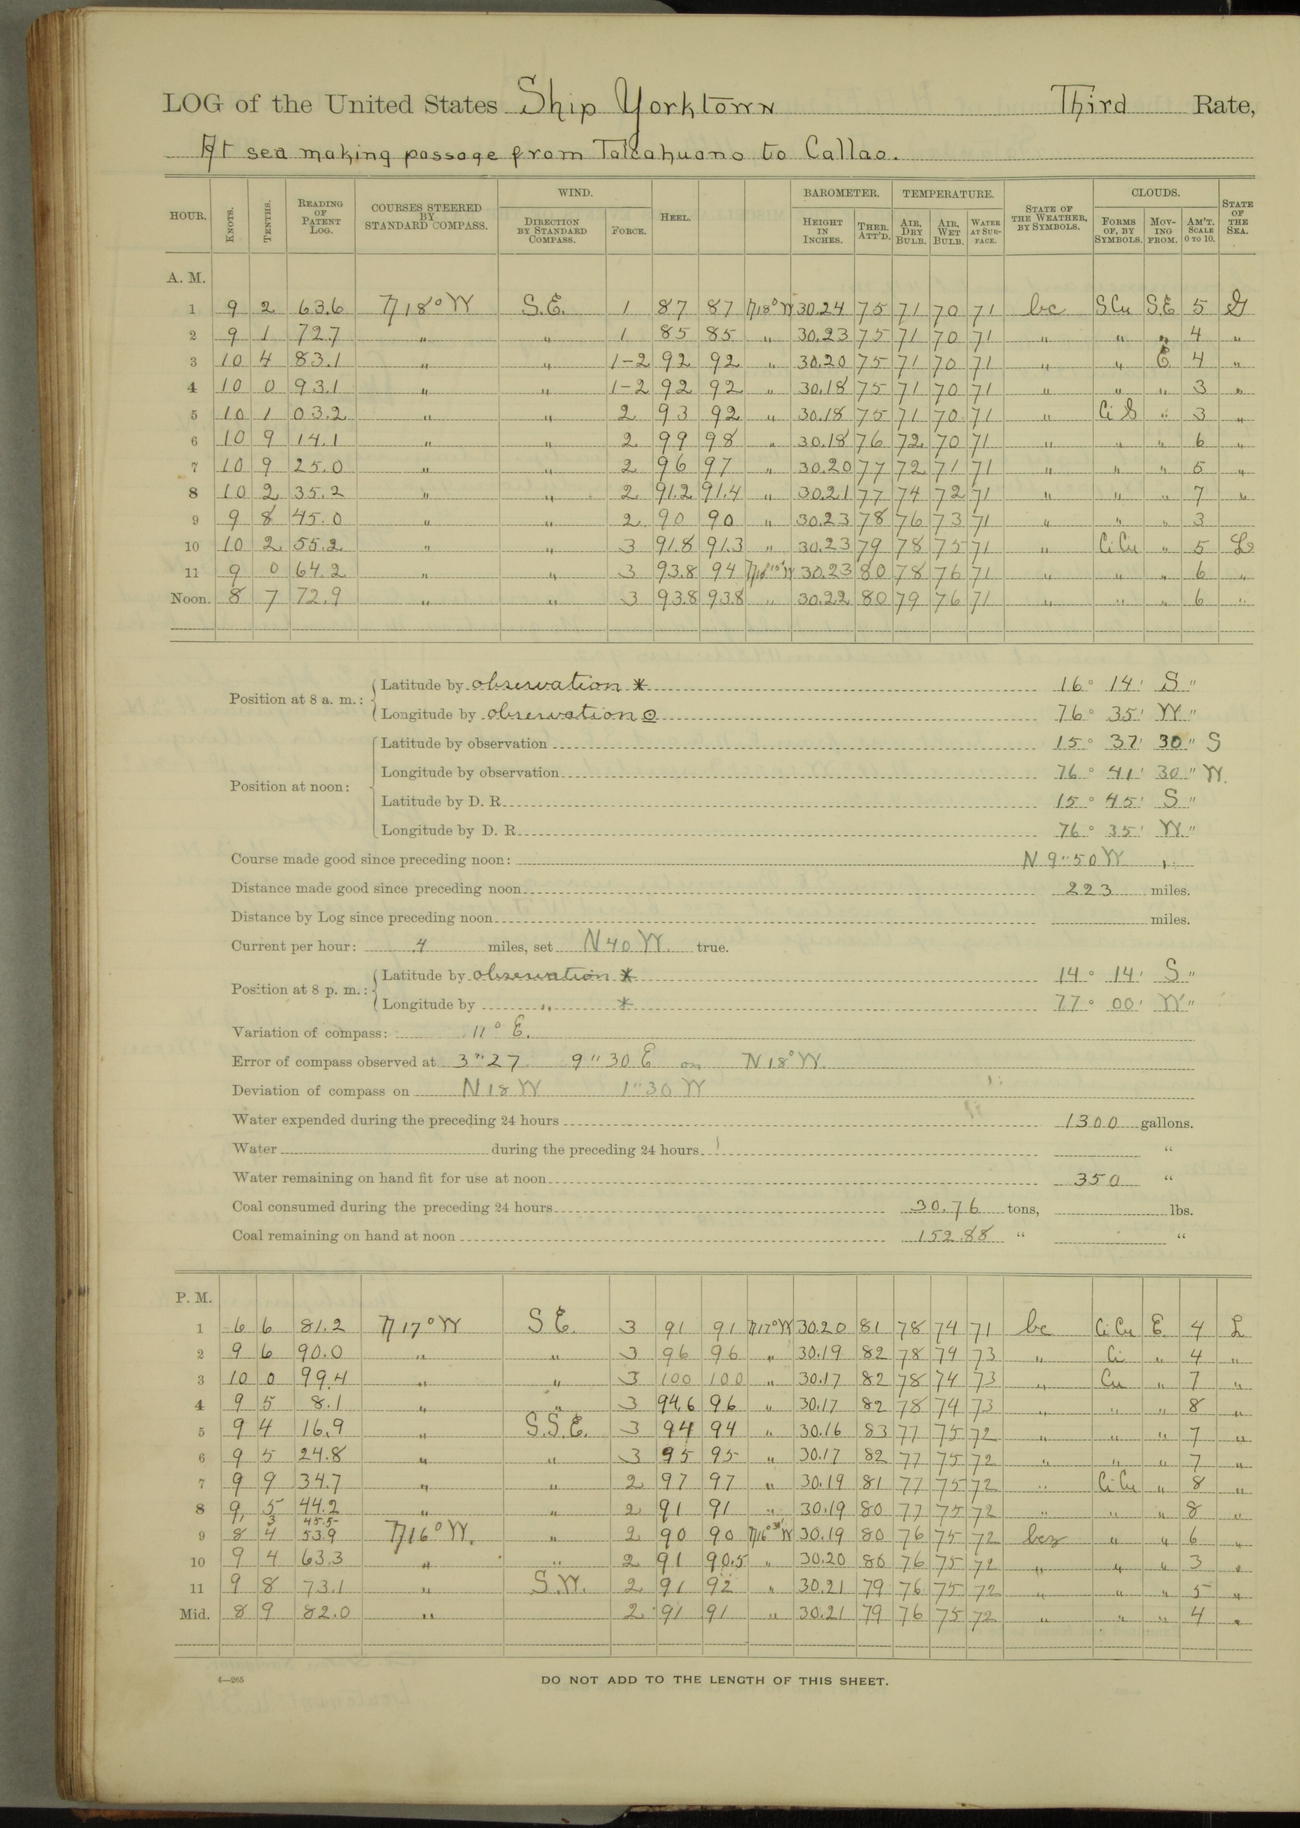 LOG of the United States Ship Yorktown Third Rate,
At sea making passage from Talcahuano to Callao.
HOUR. KNOTS. TENTHS. READING OF PATENT LOG. COURSES STEERED BY STANDARD COMPASS. WIND. DIRECTION BY STANDARD COMPASS. FORCE. HEEL. BAROMETER. HEIGHT IN INCHES. THER. ATT'D. TEMPERATURE. AIR, DRY BULB. AIR, WET BULB. WATER AT SURFACE. STATE OF THE WEATHER, BY SYMBOLS. CLOUDS. FORMS OF, BY SYMBOLS. MOVING FROM. AM'T. SCALE 0 TO 10. STATE OF THE SEA.
A. M.
1 9 2 63.6 N 18° W S.E. 1 87 87 N 18° W 30.24 75 71 70 71 bc S Cu S.E 5 S
2 9 1 72.7 " " 1 85 85 " 30.23 75 71 70 71 " " " 4 "
3 10 4 83.1 " " 1-2 92 92 " 30.20 75 71 70 71 " " E 4 "
4 10 0 93.1 " " 1-2 92 92 " 30.18 75 71 70 71 " " " 3 "
5 10 1 03.2 " " 2 93 92 " 30.18 75 71 70 71 " Ci S " 3 "
6 10 9 14.1 " " 2 99 98 " 30.18 76 72 70 71 " " " 6 "
7 10 9 25.0 " " 2 96 97 " 30.20 77 72 71 71 " " " 5 "
8 10 2 35.2 " " 2 91.2 91.4 " 30.21 77 74 72 71 " " " 7 "
9 9 8 45.0 " " 2 90 90 " 30.23 78 76 73 71 " " " 3
10 10 2 55.2 " " 3 91.8 91.3 " 30.23 79 78 75 71 " Ci Cu " 5 L
11 9 0 64.2 " " 3 93.8 94 30.23 80 78 76 71 " " " 6 "
Noon. 8 7 72.9 " " 3 93.8 93.8 " 30.22 80 79 76 71 " " " 6 "
Position at 8 a. m.: Latitude by observation * 16° 14' S "
Longitude by observation ⊙ 76° 35' W "
Position at noon: Latitude by observation 15° 37' 30" S
Longitude by observation 76° 41' 30" W.
Latitude by D. R. 15° 45' S "
Longitude by D. R. 76° 35' W "
Course made good since preceding noon: N 9" 50 W
Distance made good since preceding noon 223 miles.
Distance by Log since preceding noon miles.
Current per hour: .4 miles, set N 40 W. true.
Position at 8 p. m.: Latitude by observation * 14° 14' S "
Longitude by " * 77° 00' W "
Variation of compass: 11° E.
Error of compass observed at 3" 27 9" 30 E on N 18° W.
Deviation of compass on N 18 W 1" 30 W
Water expended during the preceding 24 hours 1300 gallons.
Water during the preceding 24 hours "
Water remaining on hand fit for use at noon 350 "
Coal consumed during the preceding 24 hours 30.76 tons, lbs.
Coal remaining on hand at noon 152.88 " "
P. M.
1 6 6 81.2 N 17° W S E. 3 91 91 N 17° W 30.20 81 78 74 71 bc Ci Cu E. 4 L
2 9 6 90.0 " " 3 96 96 " 30.19 82 78 74 73 " Ci " 4 "
3 10 0 99.4 " " 3 100 100 " 30.17 82 78 74 73 " Cu " 7 "
4 9 5 8.1 " " 3 94.6 96 " 30.17 82 78 74 73 " " " 8 "
5 9 4 16.9 " S.S.E. 3 94 94 " 30.16 83 77 75 72 " " " 7 "
6 9 5 24.8 " " 3 95 95 " 30.17 82 77 75 72 " " " 7 "
7 9 9 34.7 " " 2 97 97 " 30.19 81 77 75 72 " Ci Cu " 8 "
8 9 5 44.2 " " 2 91 91 " 30.19 80 77 75 72 " " " 8 "
3 45.5
9 8 4 53.9 N 16° W. " 2 90 90 N 16° 30' W 30.19 80 76 75 72 bcz " " 6 "
10 9 4 63.3 " " 2 91 90.5 " 30.20 80 76 75 72 " " " 3 "
11 9 8 73.1 " S.W. 2 91 92 " 30.21 79 76 75 72 " " " 5 "
Mid. 8 9 82.0 " 2 91 91 " 30.21 79 76 75 72 " " " 4 "
4—265 DO NOT ADD TO THE LENGTH OF THIS SHEET.